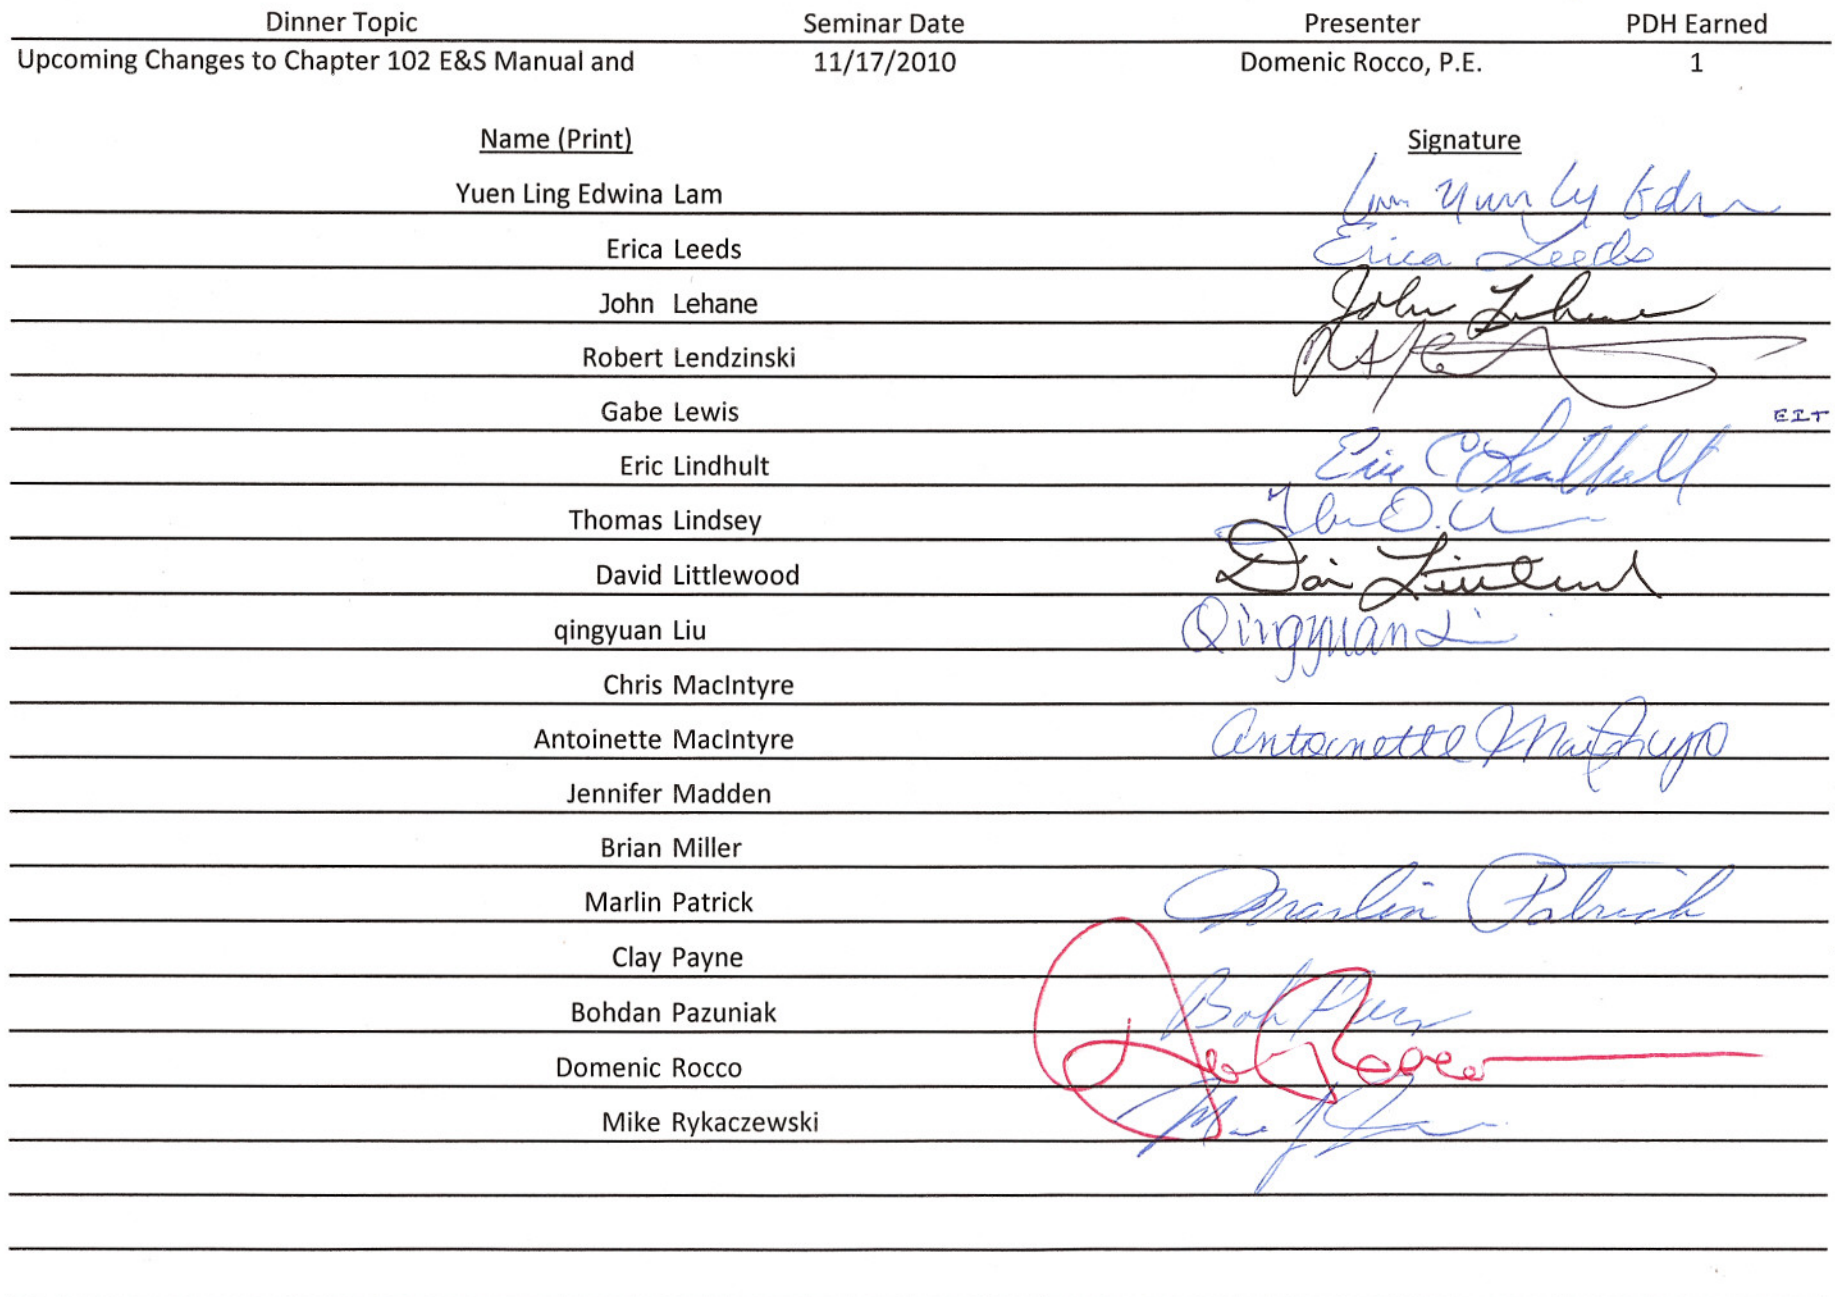 Dinner Topic Seminar Date Presenter PDH Earned
Upcoming Changes to Chapter 102 E&S Manual and 11/17/2010 Domenic Rocco, P.E. 1
Name (Print) Signature
Yuen Ling Edwina Lam
Erica Leeds Erica Leeds
John Lehane John Lehane
Robert Lendzinski
Gabe Lewis EIT
Eric Lindhult Eric C Lindhult
Thomas Lindsey
David Littlewood
qingyuan Liu Qingyuan Liu
Chris MacIntyre
Antoinette MacIntyre Antoinette MacIntyre
Jennifer Madden
Brian Miller
Marlin Patrick Marlin Patrick
Clay Payne
Bohdan Pazuniak
Domenic Rocco
Mike Rykaczewski